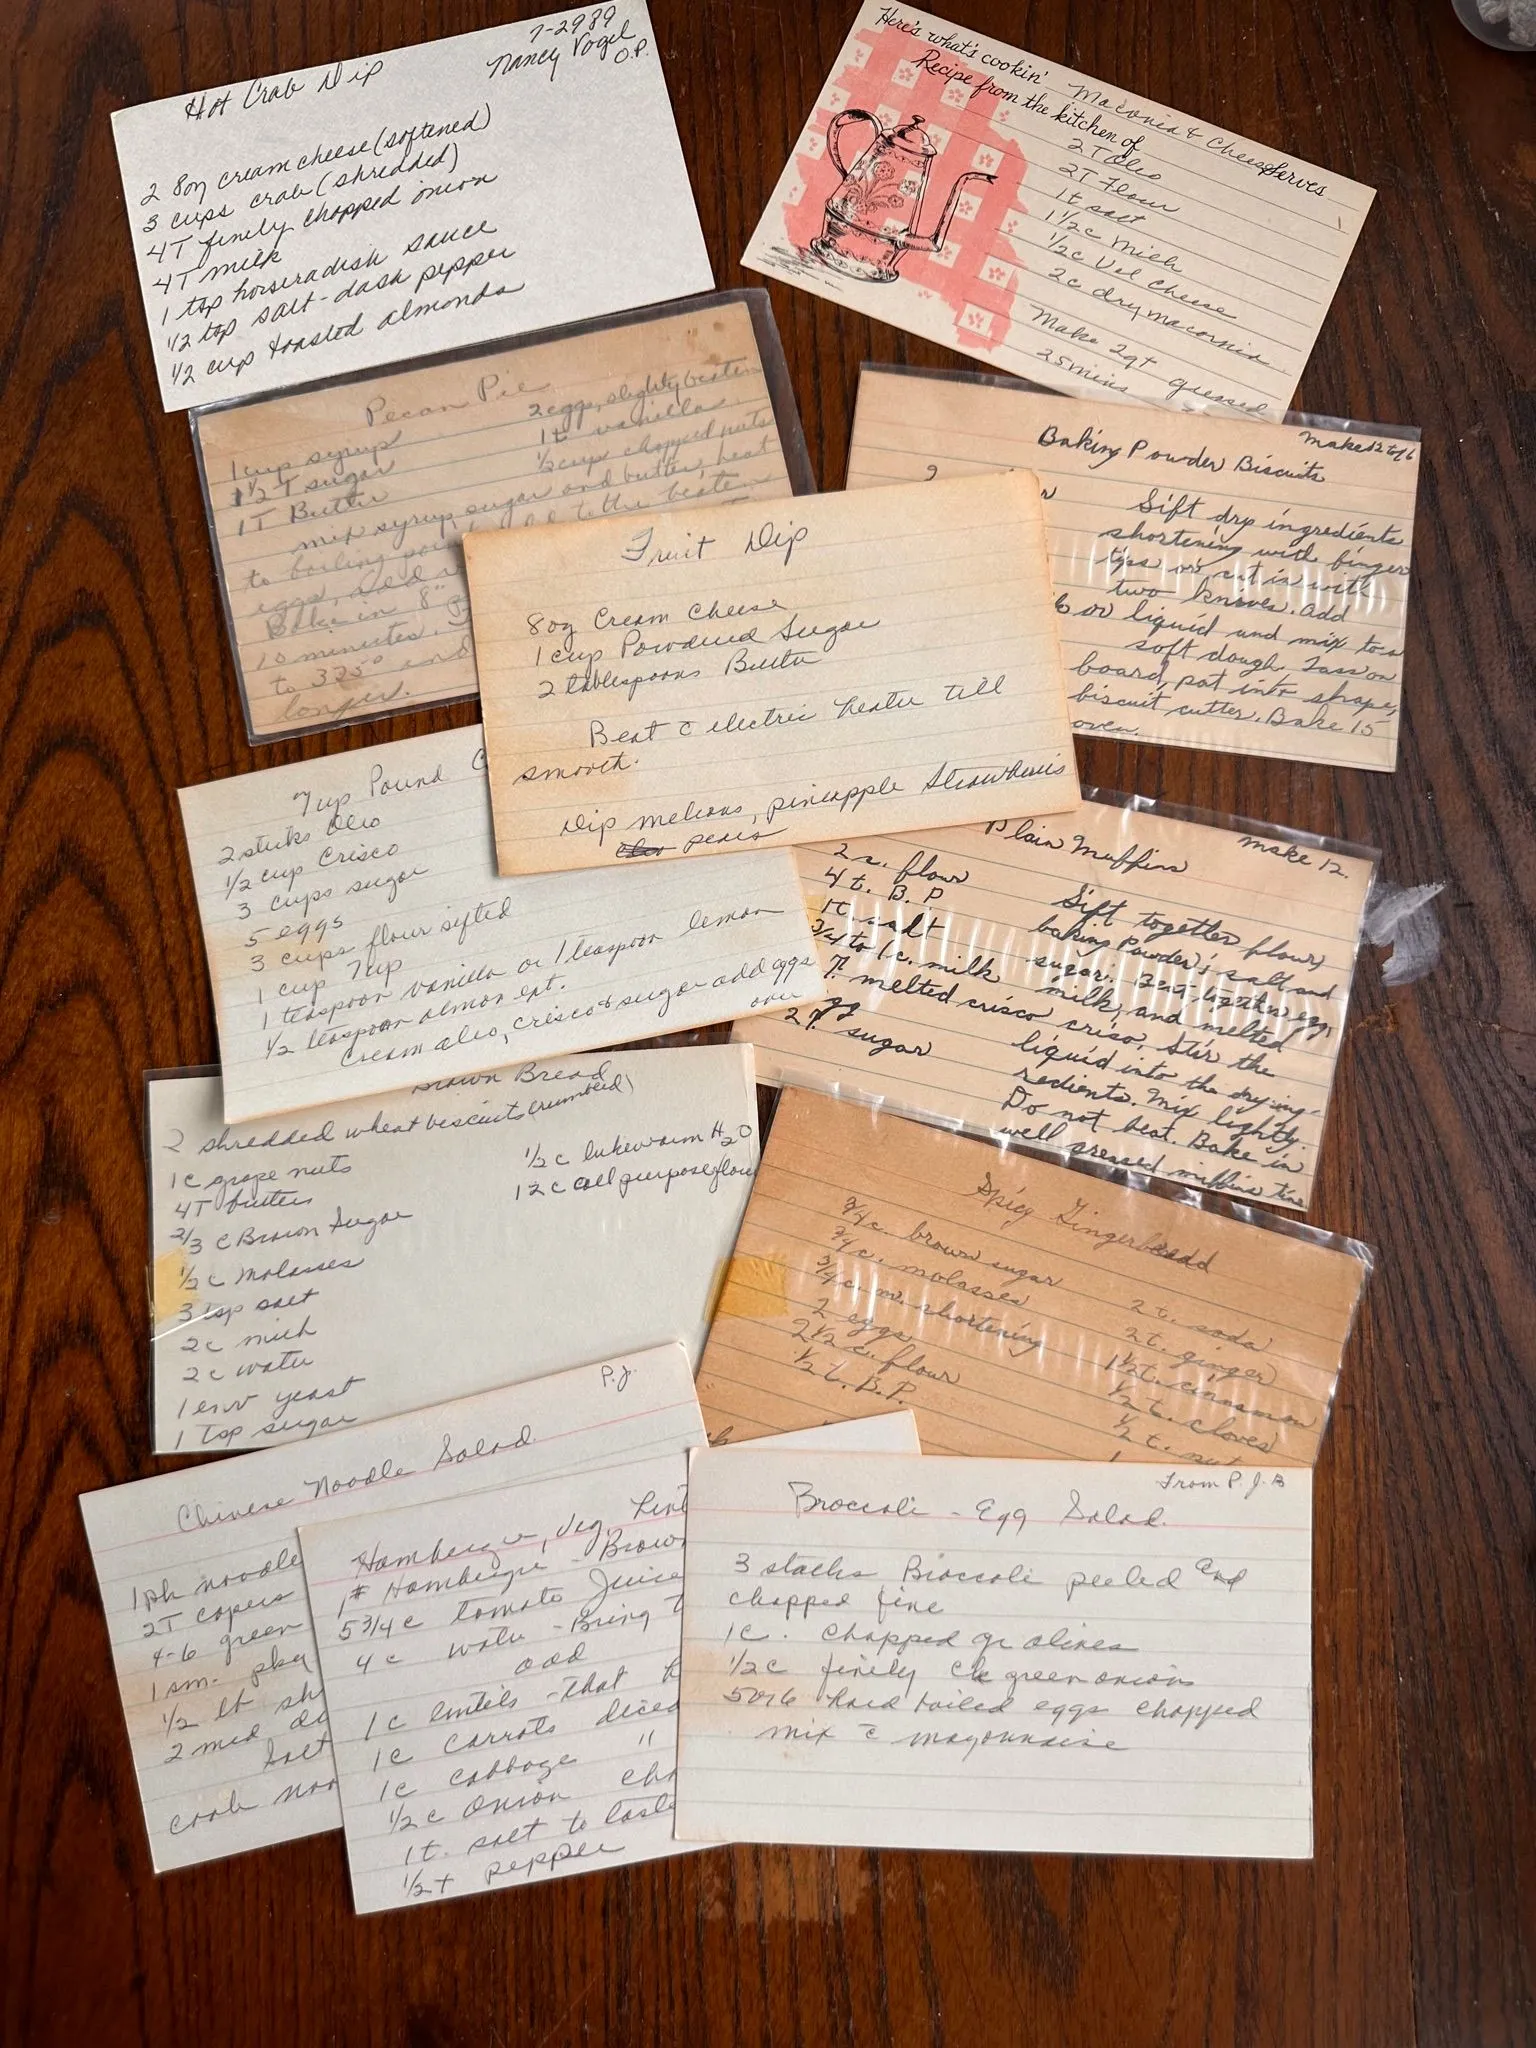 Hot Crab Dip
7-2989
Nancy Vogel
O.P.
2 8oz cream cheese (softened)
3 cups crab (shredded)
4T finely chopped onion
4T milk
1 tsp horseradish sauce
1/2 tsp salt - dash pepper
1/2 cup toasted almonds
Here's what's cookin' Macornia & Cheese Serves
Recipe from the kitchen of
2T Oleo
2T Flour
1t salt
1 1/2c Milk
1/2c Vel Cheese
2c dry macornia
Make 2qt greased
25 mins
Pecan Pie
1 cup syrup
1 1/2 T sugar
1T Butter
2 eggs, slightly beaten
1t vanilla
1/2 cup chopped nuts
mix syrup sugar and butter, heat
to boiling to the beaten
eggs, add
Bake in 8"
10 minutes.
to 325° and
longer.
make 12 to 16
Baking Powder Biscuits
Sift dry ingredients
shortening with finger
tips or cut in with
two knives. add
liquid and mix to a
soft dough. Toss on
board, pat into shape,
biscuit cutter. Bake 15
oven.
Fruit Dip
8oz Cream Cheese
1 cup Powdered Sugar
2 tablespoons Butter
Beat c̄ electric beater till
smooth.
Dip melons, pineapple Strawberries
pears
7up Pound C
2 sticks Oleo
1/2 cup Crisco
3 cups sugar
5 eggs
3 cups flour sifted
1 cup 7up
1 teaspoon vanilla or 1 teaspoon lemon
1/2 teaspoon almon ext.
Cream oleo, crisco & sugar add eggs
Plain Muffins
make 12.
2 c. flour
4 t. B.P
1t. salt
3/4 to 1c. milk
T. melted crisco
gg
2 T. sugar
Sift together flour,
baking Powder, salt and
sugar. Beat together egg,
milk, and melted
crisco, Stir the
liquid into the drying-
redients. Mix lightly.
Do not beat. Bake in
well greased muffins tins
Brown Bread
2 shredded wheat biscuits (crumbled)
1c grape nuts
4T butter
2/3 c Brown Sugar
1/2 c Molasses
3 tsp salt
2c milk
2c water
1 env yeast
1 Tsp sugar
1/2 c lukewarm H2O
12 c all purpose flour
Spicy Gingerbreadd
3/4 c. brown sugar
3/4 c. molasses
3/4 c. m. shortening
2 eggs
2 1/2 c. flour
1/2 t. B.P.
2 t. soda
2 t. ginger
1 1/2 t. cinnamon
1/2 t. cloves
1/2 t. nut
P.J.
Chinese Noodle Salad
1 pk noodle
2T capers
4-6 green
1 sm. pkg
1/2 lb sh
2 med
Salt
Cook noo
Hamberger, Veg, Lent
1# Hamberger - Brown
5 3/4 c tomato Juice
4 c water - Bring t
add
1c lentils - that
1c Carrots diced
1c Cabbage "
1/2 c Onion
1t. salt to taste
1/2 t pepper
From P.J.B
Broccoli - Egg Salad
3 stacks Broccoli peeled and
chopped fine
1c. chopped gr olives
1/2c finely ch green onions
5 or 6 hard boiled eggs chopped
mix c̄ mayonnaise